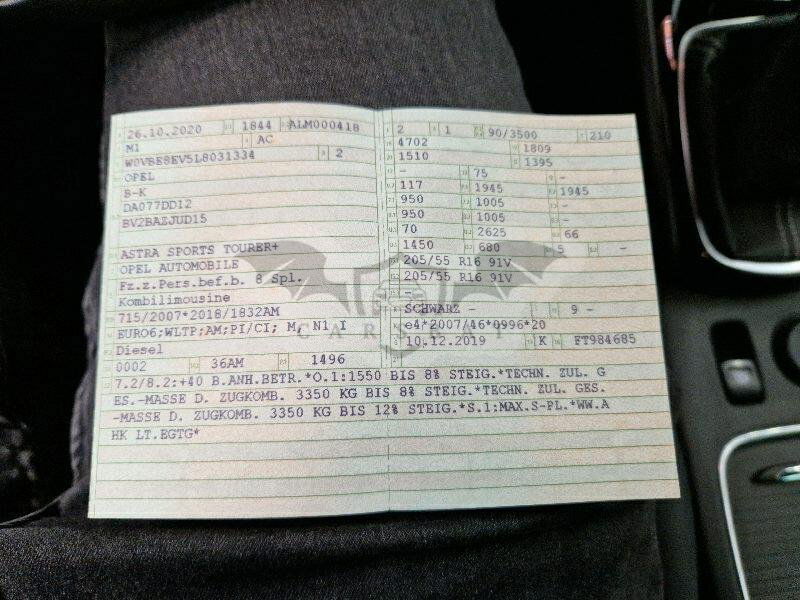 26.10.2020 1844 ALM000418
M1 AC
W0VBE8EV5L8031334 2
OPEL
B-K
DA077DD12
BV2BAZJUD15
ASTRA SPORTS TOURER+
OPEL AUTOMOBILE
Fz.z.Pers.bef.b. 8 Spl.
Kombilimousine
715/2007*2018/1832AM
EURO6;WLTP;AM;PI/CI; M, N1 I
Diesel
0002 36AM 1496
2 1 90/3500 210
4702 1809
1510 1395
- 75 -
117 1945 1945
950 1005 -
950 1005 -
70 2625 66
1450 680 5 -
205/55 R16 91V
205/55 R16 91V
-
SCHWARZ - 9 -
e4*2007/46*0996*20
10.12.2019 K FT984685
7.2/8.2:+40 B.ANH.BETR.*O.1:1550 BIS 8% STEIG.*TECHN. ZUL. G
ES.-MASSE D. ZUGKOMB. 3350 KG BIS 8% STEIG.*TECHN. ZUL. GES.
-MASSE D. ZUGKOMB. 3350 KG BIS 12% STEIG.*S.1:MAX.S-PL.*WW.A
HK LT.EGTG*